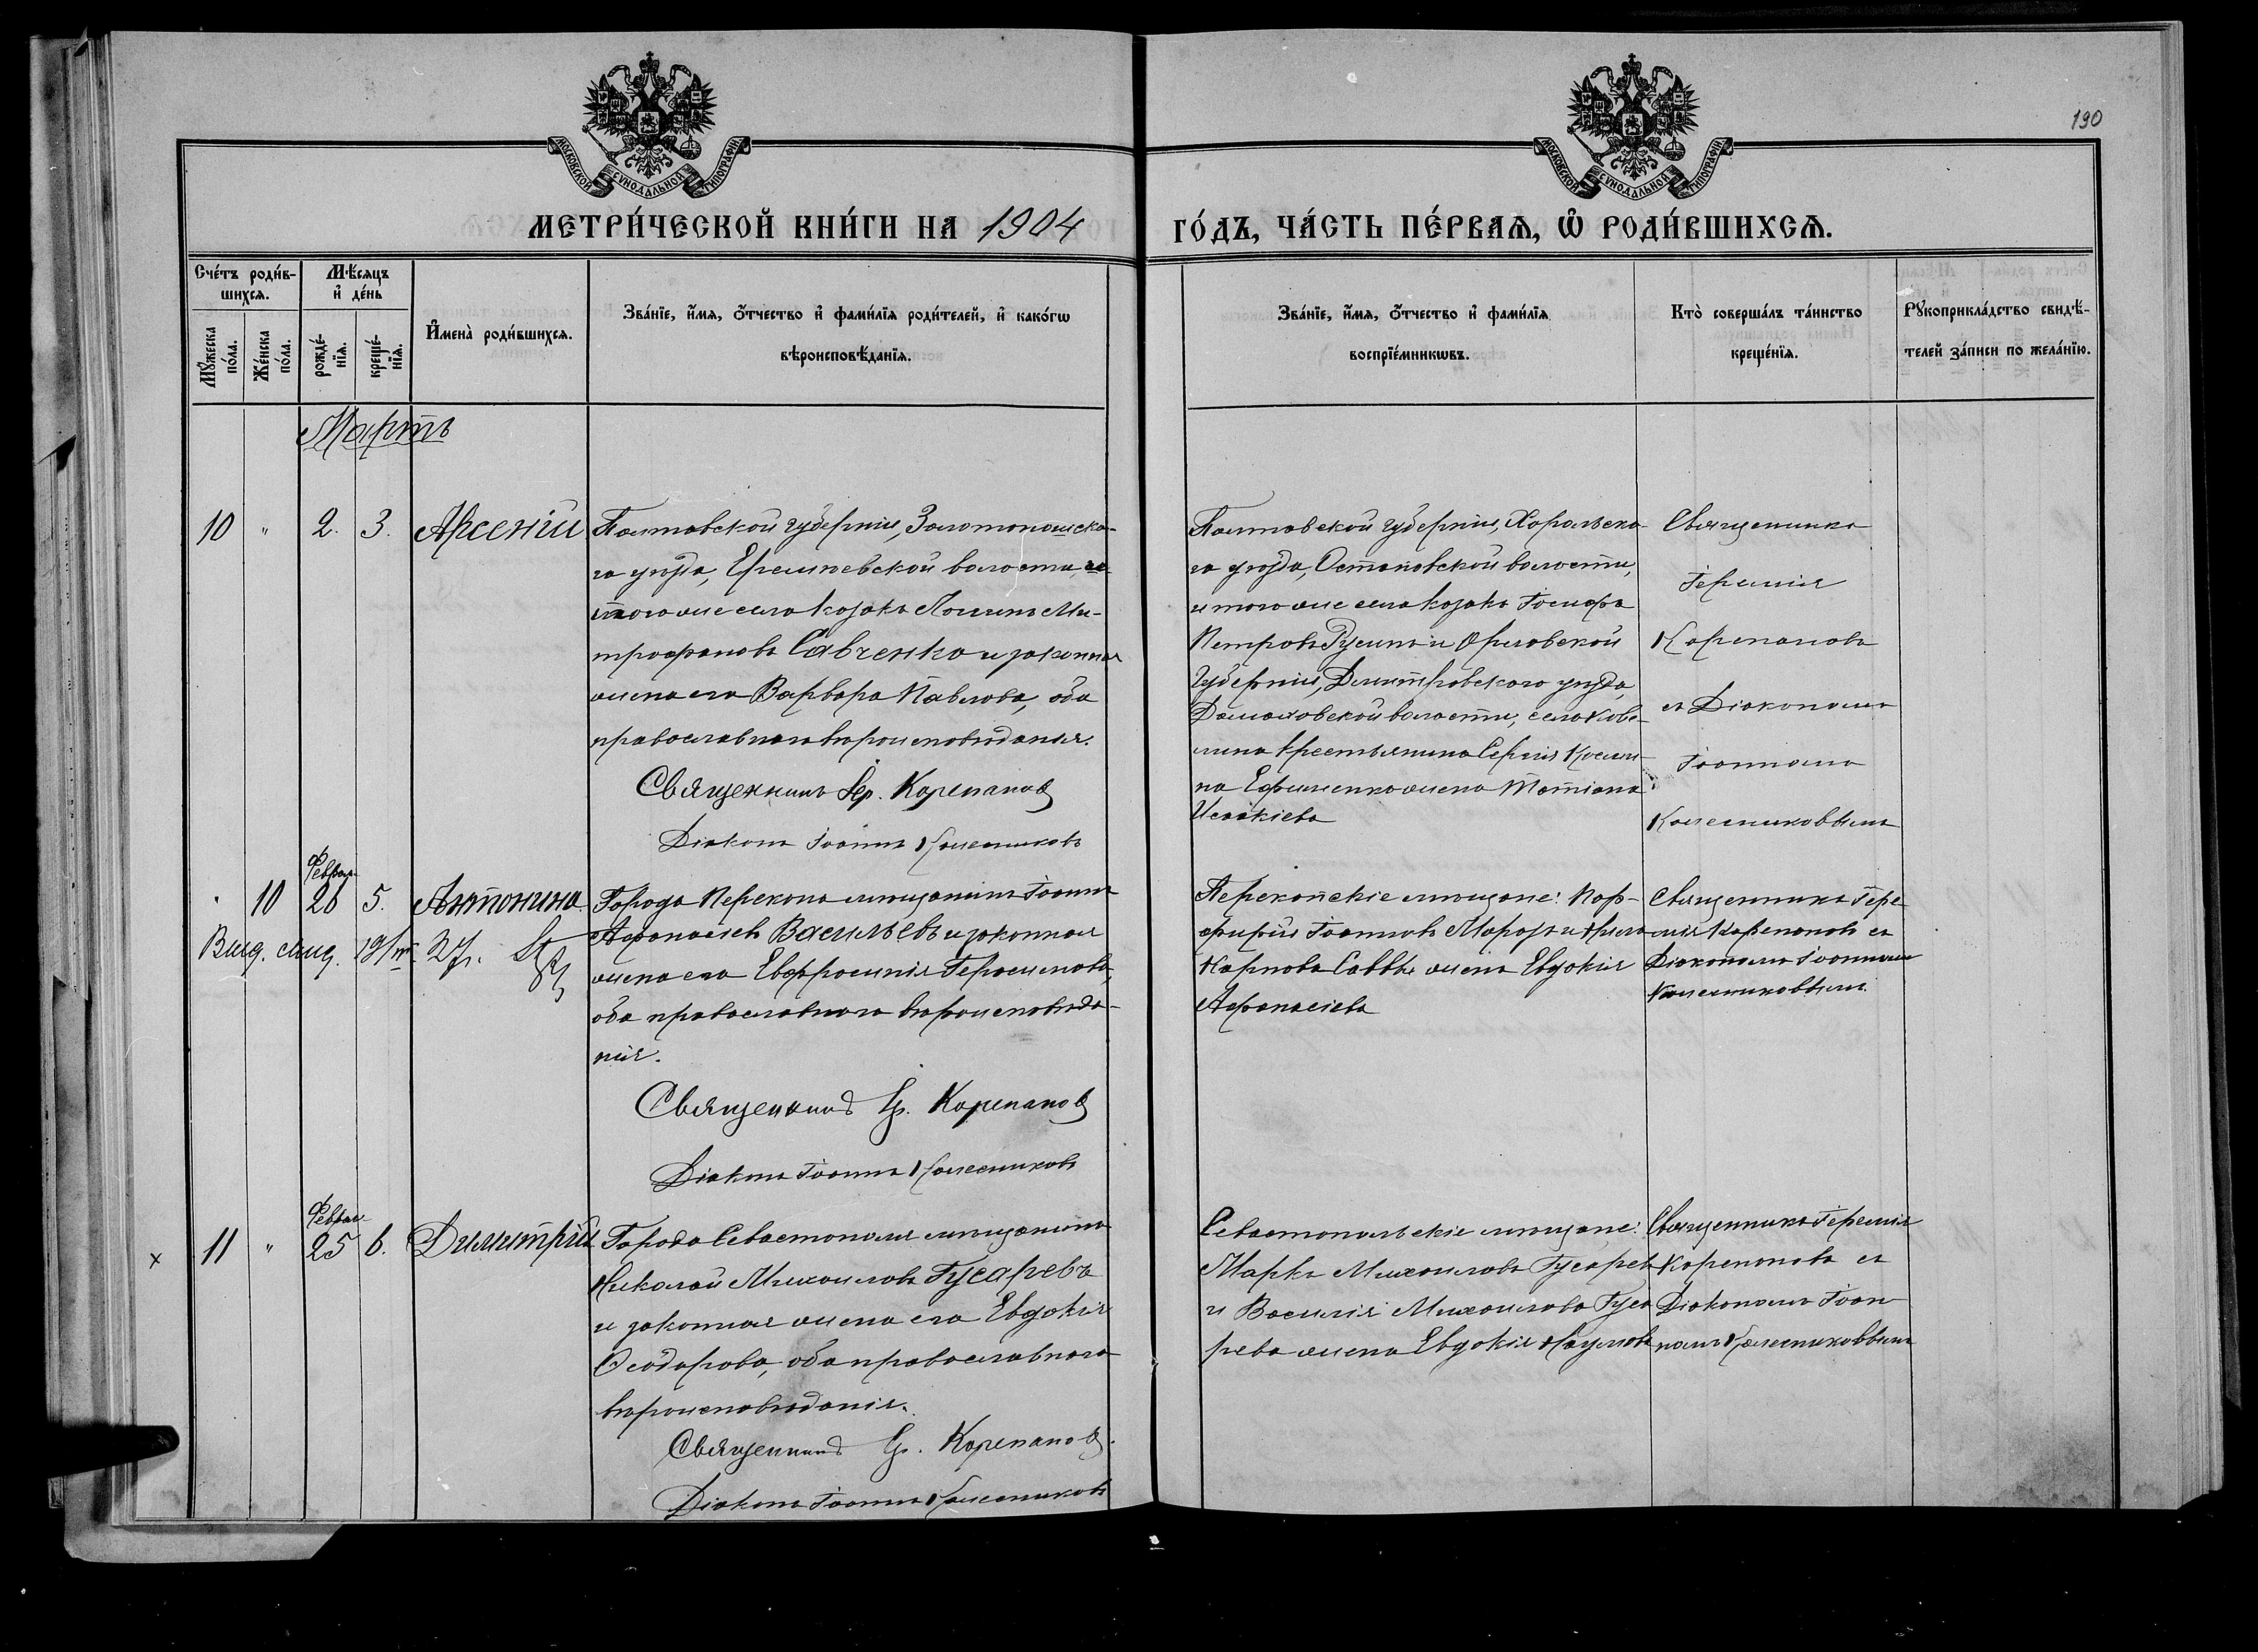 190
МОСКОВСКОЙ СѴНОДАЛЬНОЙ ТИПОГРАФІИ
МОСКОВСКОЙ СѴНОДАЛЬНОЙ ТИПОГРАФІИ
МЕТРИ́ЧЕСКОЙ КНИ́ГИ НА 1904 ГО́ДЪ, ЧА́СТЬ ПЕ́РВАѦ, Ѡ҆ РОДИ́ВШИХСѦ.
Сче́тъ роди́в-
шихсѧ.
Мꙋ́жеска по́ла.
Же́нска по́ла.
Мѣ́сѧцъ
и҆ де́нь
рожде́-
нїѧ.
креще́-
нїѧ.
И҆мена̀ роди́вшихсѧ.
Зва́нїе, и҆́мѧ, ѻ҆́тчество и҆ фами́лїѧ роди́телей, и҆ како́гѡ
вѣроисповѣ́данїѧ.
Зва́нїе, и҆́мѧ, ѻ҆́тчество и҆ фами́лїѧ
воспрїе́мникѡвъ.
Кто̀ соверша́лъ та́инство
креще́нїѧ.
Рꙋкоприкла́дство свидѣ́-
телей за́писи по жела́нїю.
Мартъ
10 " 2. 3. Арсеній
Полтавской губерніи, Золотоношска-
го уѣзда, Еремѣевской волости, и
того же села козакъ Логинъ Ми-
трофановъ Савченко и законная
жена его Варвара Павлова, оба
православнаго вѣроисповѣданія.
Священникъ Іер. Карепановъ
Діаконъ Іоаннъ Колесниковъ
Полтавской губерніи, Хорольска-
го уѣзда, Остаповской волости,
и того же села козакъ Іосифъ
Петровъ и Орловской
губерніи, Дмитровскаго уѣзда,
Домаховской волости, села
крестьянина Сергія
Ефименко жена Татіана
Исаакіева
Священникъ
Іеремія
Карепановъ
съ Діакономъ
Іоанномъ
Колесниковымъ
" 10 Феврал. 26 5. Антонина
Выд. свид.
Города Перекопа мѣщанинъ Іоаннъ
Афанасіевъ Васильевъ и законная
жена его Евфросинія Герасимова,
оба православнаго вѣроисповѣда-
нія.
Священникъ Іер. Карепановъ
Діаконъ Іоаннъ Колесниковъ
Перекопскіе мѣщане: Пор-
фирій Іоанновъ Марозъ и
Карпова Саввы жена Евдокія
Афанасіева
Священникъ Іере-
мія Карепановъ съ
Діакономъ Іоанномъ
Колесниковымъ.
x 11 " Феврал. 25 6. Димитрій
Города Севастополя мѣщанинъ
Николай Михаиловъ Гусаревъ
и законная жена его Евдокія
Ѳеодорова, оба православнаго
вѣроисповѣданія.
Священникъ Іер. Карепановъ.
Діаконъ Іоаннъ Колесниковъ
Севастопольскіе мѣщане:
Маркъ Михаиловъ Гусаревъ
и Василія Михаилова Гуса-
рева жена Евдокія Наумова
Священникъ Іеремія
Карепановъ съ
Діакономъ Іоан-
номъ Колесниковымъ